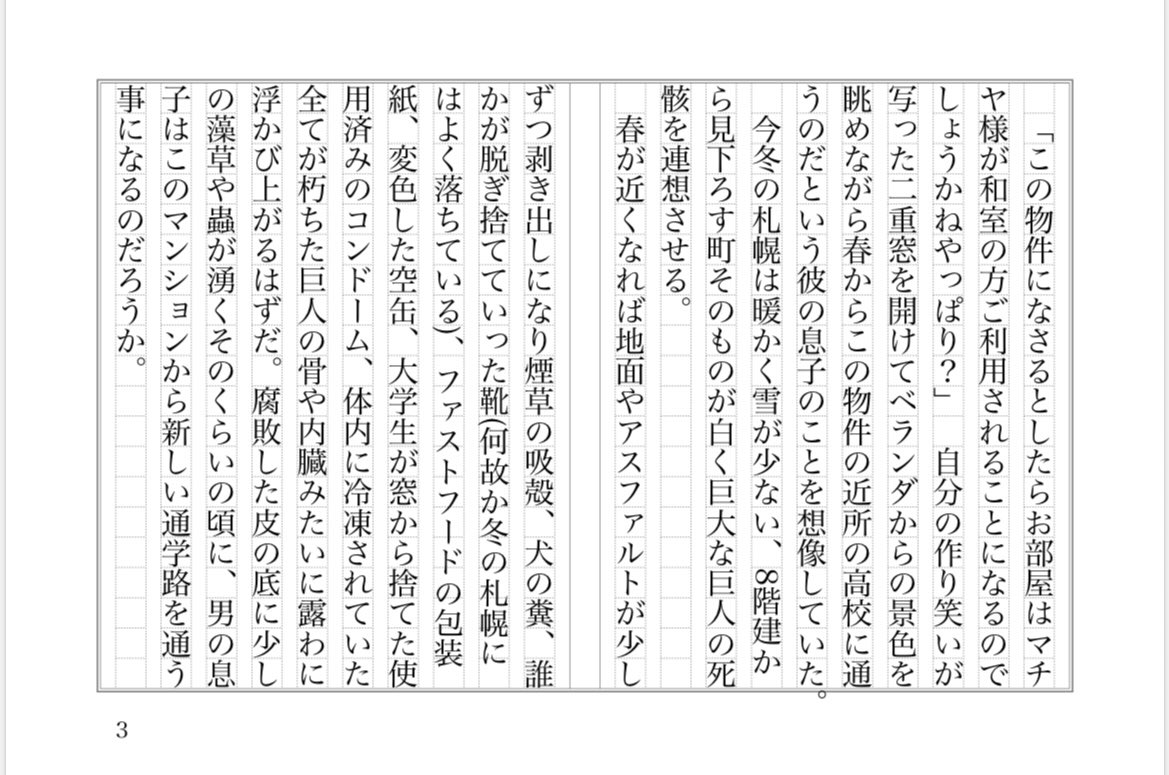 「この物件になさるとしたらお部屋はマチ
ヤ様が和室の方ご利用されることになるので
しょうかねやっぱり？」　自分の作り笑いが
写った二重窓を開けてベランダからの景色を
眺めながら春からこの物件の近所の高校に通
うのだという彼の息子のことを想像していた。
　今冬の札幌は暖かく雪が少ない、8階建か
ら見下ろす町そのものが白く巨大な巨人の死
骸を連想させる。
　春が近くなれば地面やアスファルトが少し
ずつ剥き出しになり煙草の吸殻、犬の糞、誰
かが脱ぎ捨てていった靴(何故か冬の札幌に
はよく落ちている)、ファストフードの包装
紙、変色した空缶、大学生が窓から捨てた使
用済みのコンドーム、体内に冷凍されていた
全てが朽ちた巨人の骨や内臓みたいに露わに
浮かび上がるはずだ。腐敗した皮の底に少し
の藻草や蟲が湧くそのくらいの頃に、男の息
子はこのマンションから新しい通学路を通う
事になるのだろうか。
3